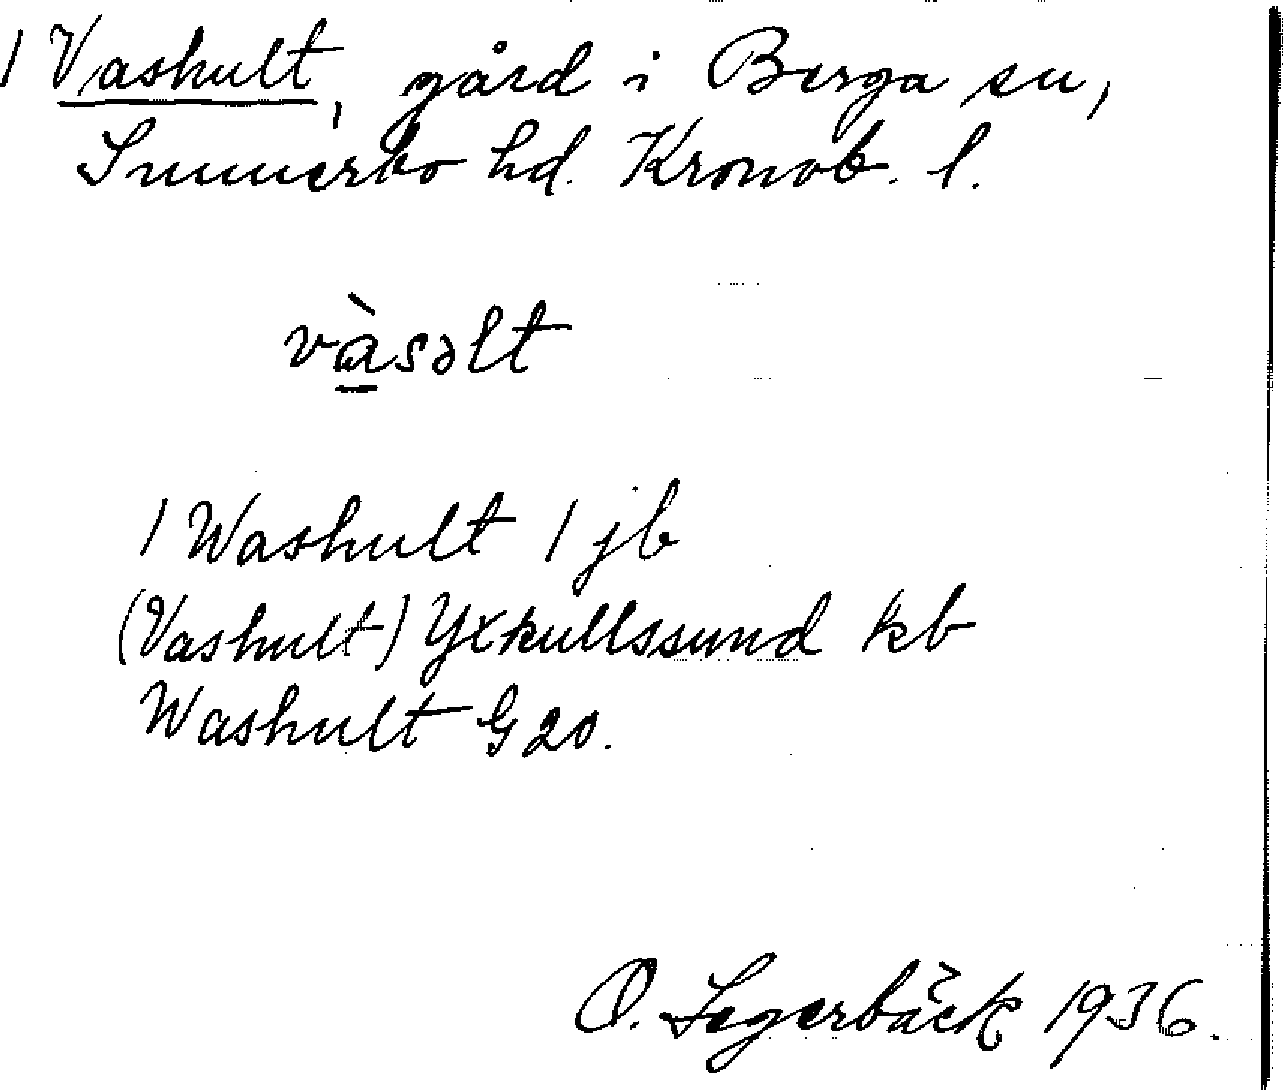 1 Vashult, gård i Berga sn,
Sunnerbo hd. Kronob. l.
và̱səlt
1 Washult 1 jb
(Vashult) Yxkullssund kb
Washult G20.
O. Lagerbäck 1936.